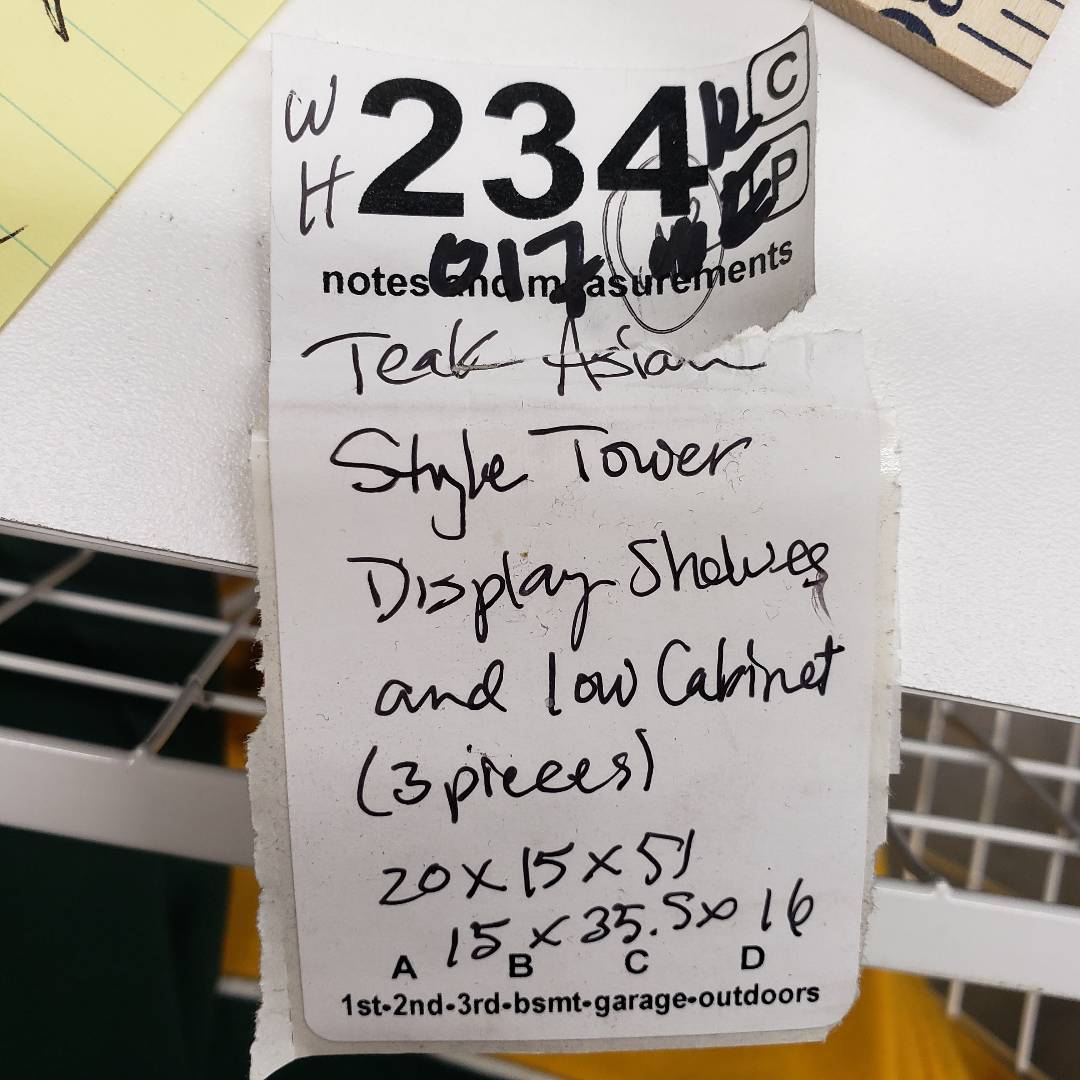 W 234 C
H P
017
notes and measurements
Teak Asian
Style Tower
Display Shelves
and low Cabinet
(3 pieces)
20 x 15 x 51
15 x 35.5 x 16
A B C D
1st-2nd-3rd-bsmt-garage-outdoors